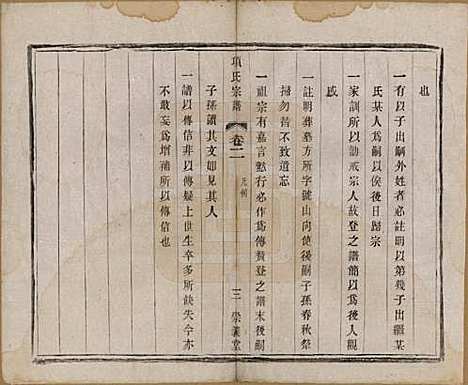 也
一有以子出嗣外姓者必註明以第幾子出繼某
氏某人爲嗣以俟後日歸宗
一家訓所以勸戒宗人故登之譜簡以爲後人觀
感
一註明葬墓方所字號山向使後嗣子孫春秋祭
掃勿替不致遺忘
項氏宗譜
卷二
凡例
三
崇義堂
一祖宗有嘉言懿行必作爲傳贊登之譜末後嗣
子孫讀其文如見其人
一譜以傳信非以傳疑上世生卒多所缺失今亦
不敢妄爲增補所以傳信也